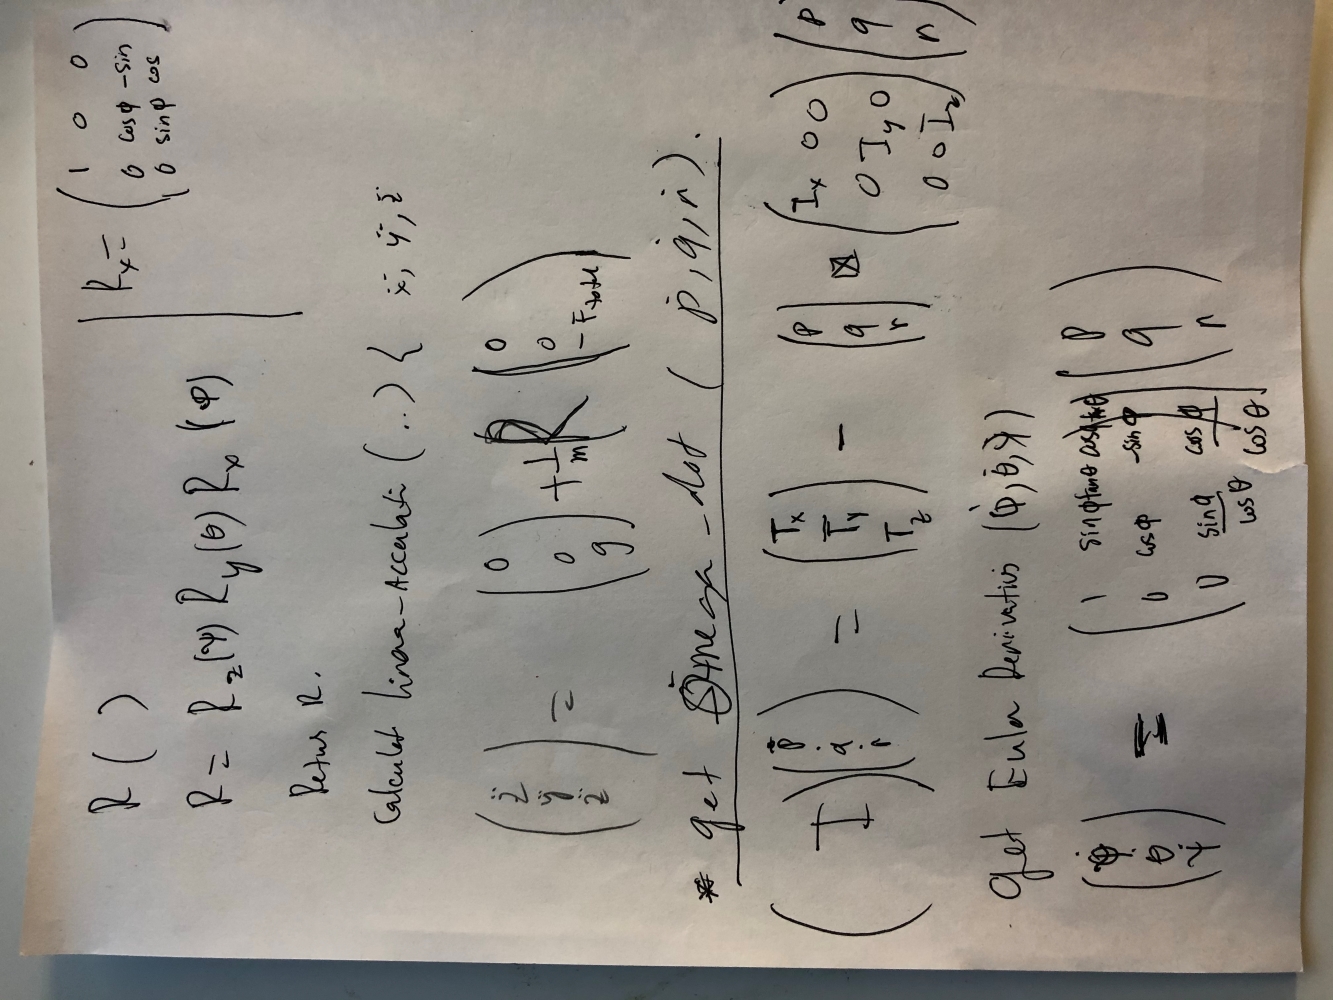 R ( )
R = R_z(ψ) R_y(θ) R_x (φ)
R_x = ( 1 0 0
0 cosφ -sin
0 sinφ cos )
Retus R.
Calculat linea-Accelati (..) { ẍ, ÿ, z̈
( z̈ ÿ z̈ ) = ( 0 0 g ) + 1/m R ( 0 0 -F_total )
* get Omega_dot ( ṗ, q̇, ṙ ).
( I ) ( ṗ q̇ ṙ ) = ( T_x T_y T_z ) - ( p q r ) ⊠ ( I_x 0 0
0 I_y 0
0 0 I_z ) ( p q r
get Eular Derivativs (φ̇, θ̇, ψ̇)
( φ̇ θ̇ ψ̇ ) = ( 1 sinφtanθ cosφtanθ
0 cosφ -sinφ
0 sinφ/cosθ cosφ/cosθ ) ( p q r )